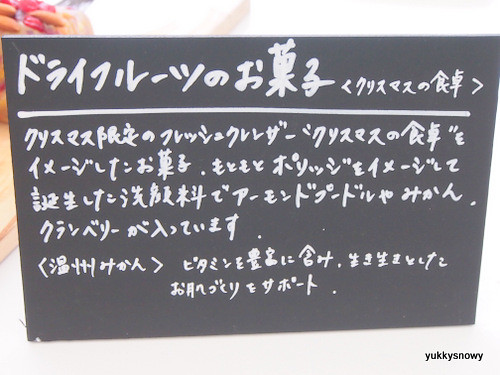 ドライフルーツのお菓子 <クリスマスの食卓>
クリスマス限定のフレッシュクレンザー“クリスマスの食卓”を
イメージしたお菓子.もともとポリッジをイメージして
誕生した洗顔料でアーモンドプードルやみかん.
クランベリーが入っています.
<温州みかん> ビタミンを豊富に含み,生き生きとした
お肌づくりをサポート.
yukkysnowy